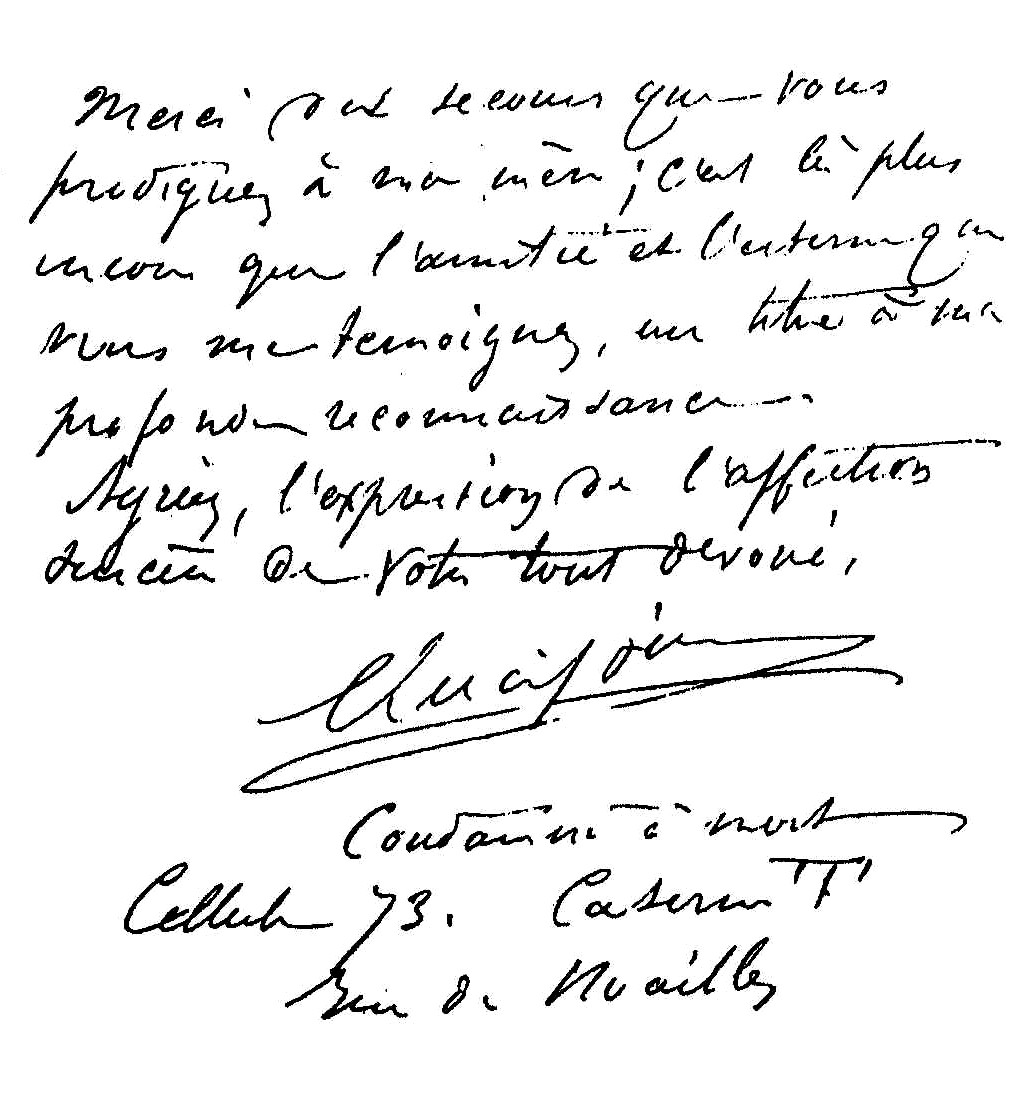 Merci des secours que vous
prodiguez à ma mère ; c'est là plus
encore que l'amitié et l'estime que
vous me temoignez, un titre à ma
profonde reconnaissance.
Agréez, l'expression de l'affection
sincère de votre tout dévoué,
Condamné à mort
Cellule 73. Caserne "F"
Rue de Noailles